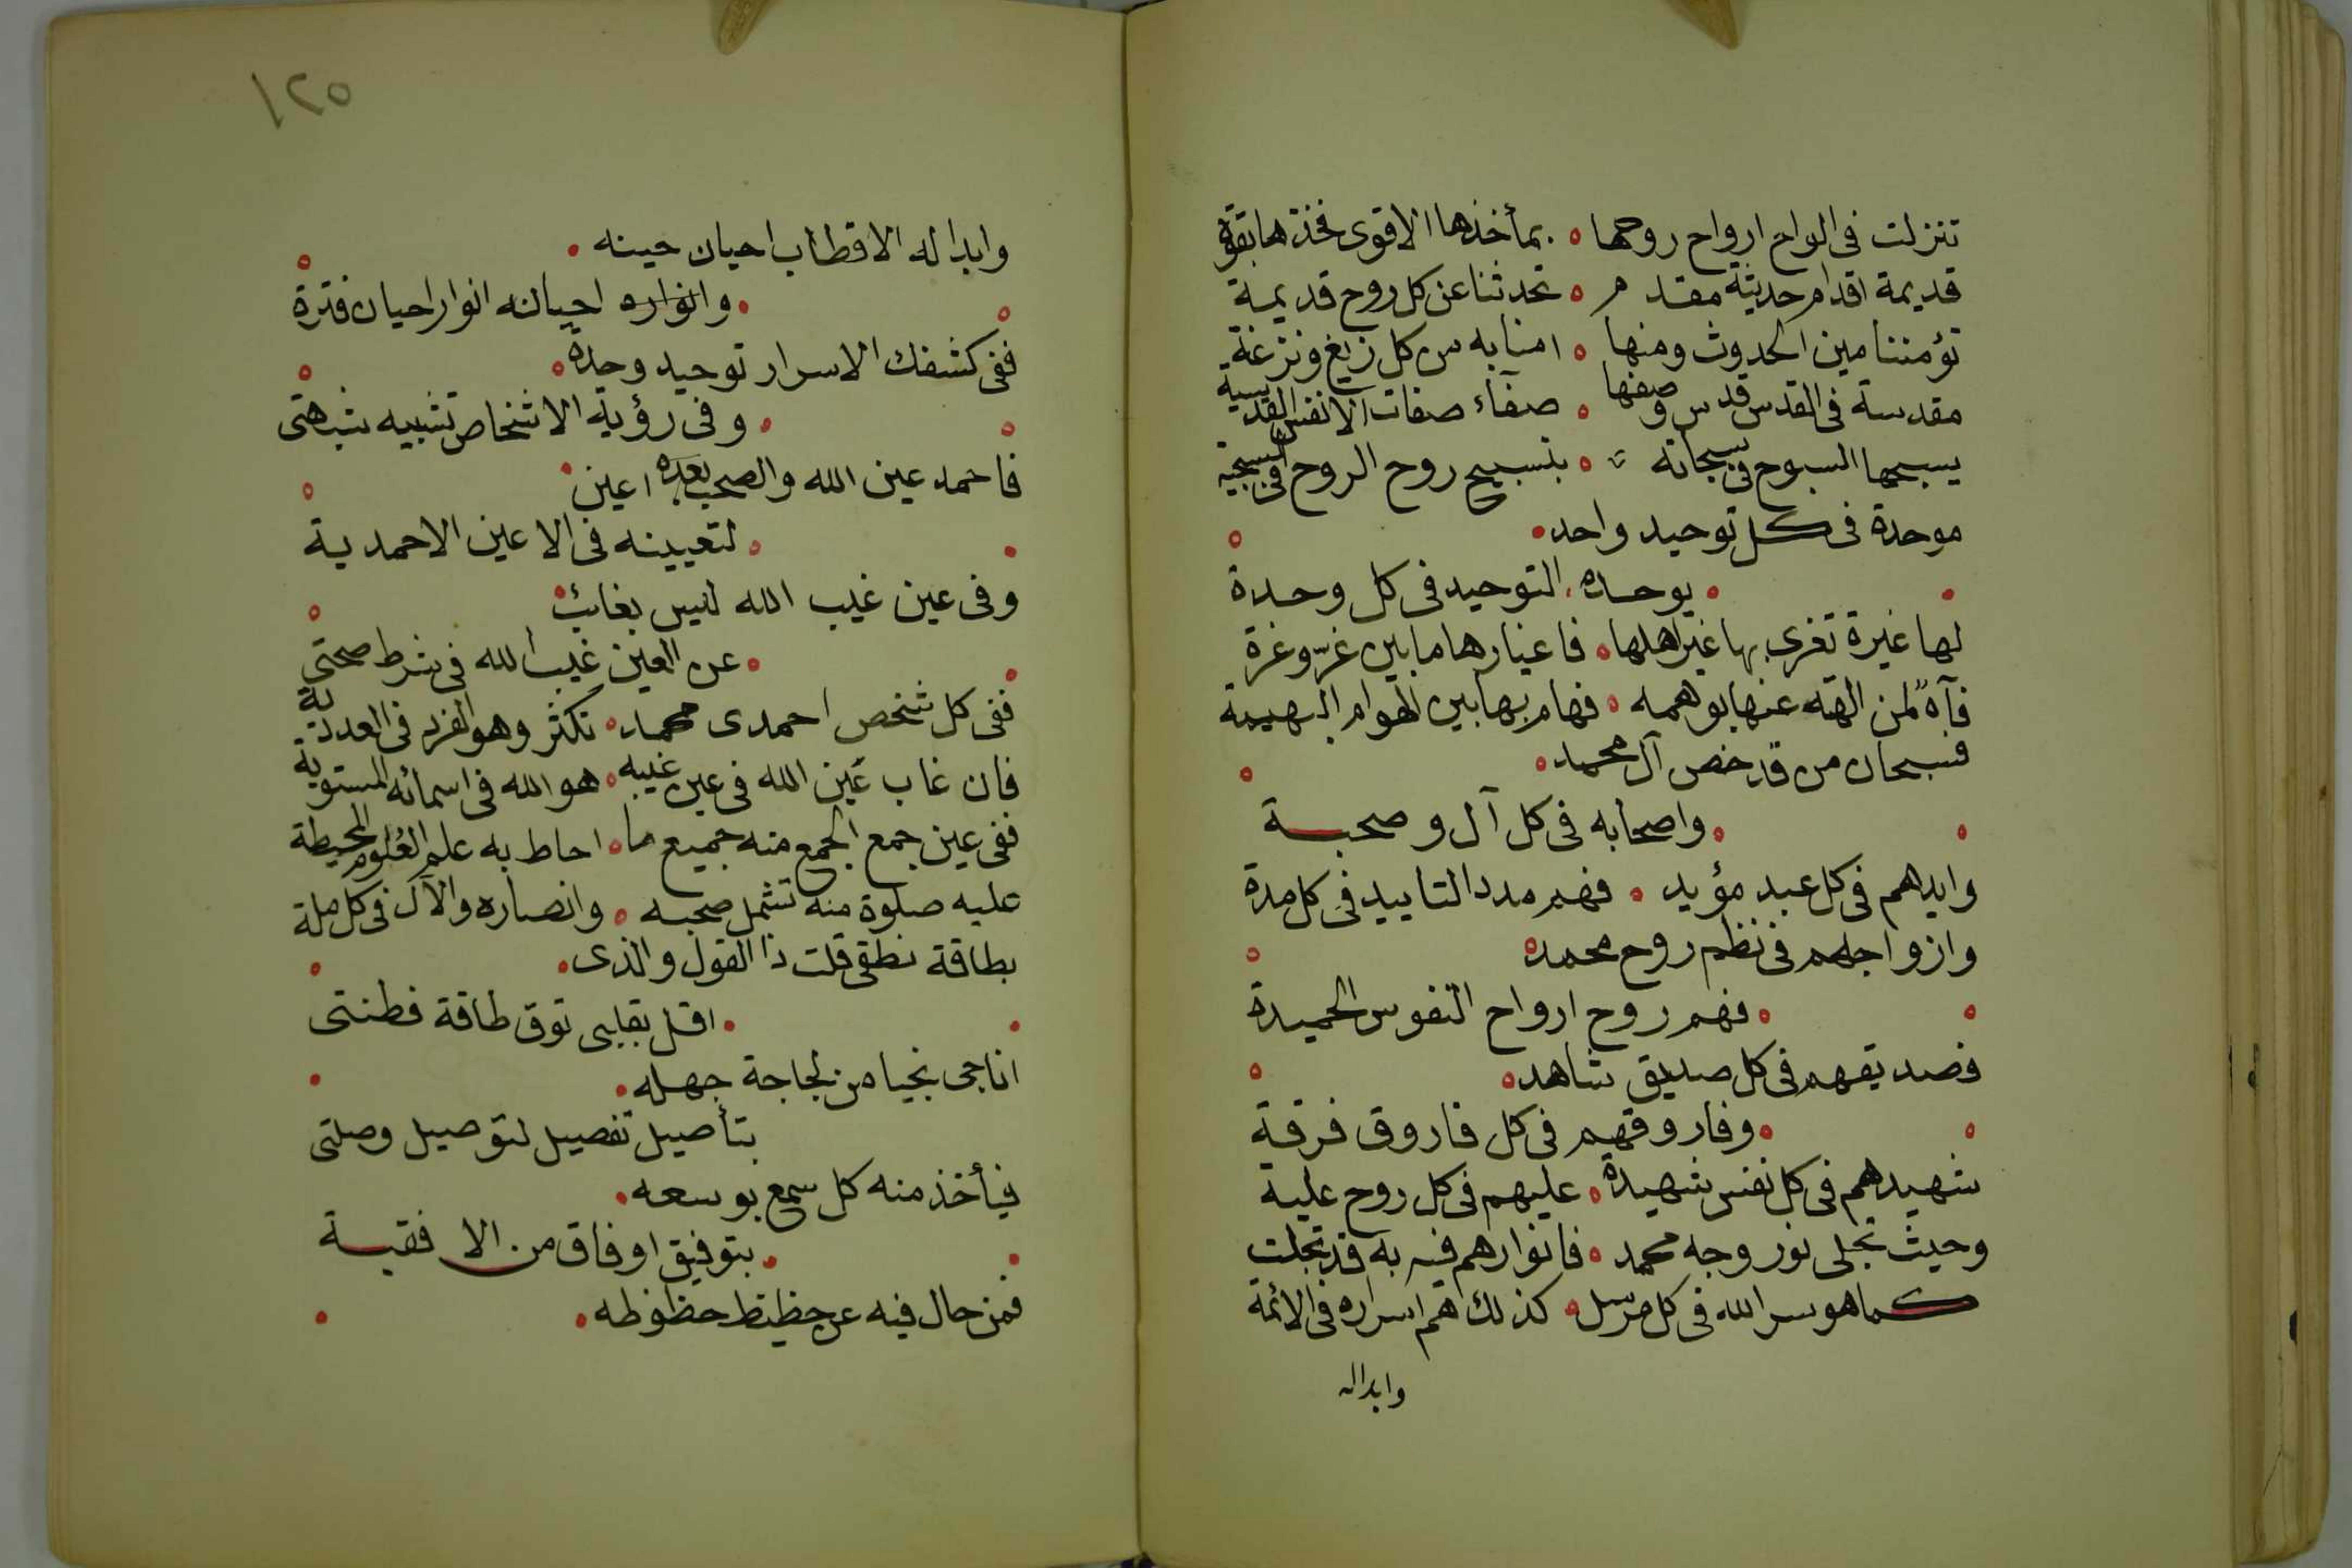 تنزلت فى الواح ارواح روحها • بمأخذها الاقوى فخذها بقوة
قديمة اقدام حديثة مقدم • تحدثنا عن كل روح قديمة
تؤمننا مين الحدوث ومنها • امنا به من كل زيغ ونزغة
مقدسة فى القدس قدس وصفها • صفآء صفات الانفس القدسية
يسبحها السبوح فى سبحاته • بتسبيح روح الروح فى
موحدة فى كل توحيد واحد •
• يوحده التوحيد فى كل وحدة
لها غيرة تغرى بها غير اهلها • فاغيارها ما بين غرّ وغرة
فآهً لمن الهته عنها بوهمه • فهام بها بين الهوام البهيمة
فسبحان من قد خص آل محمد •
• واصحابه فى كل آل وصحبة
وايدهم فى كل عبد مؤيد • فهم مدد التاييد فى كل مدة
وازواجهم فى نظم روح محمد •
• فهم روح ارواح النفوس الحميدة
فصديقهم فى كل صديق شاهد •
• وفاروقهم فى كل فاروق فرقة
شهيدهم فى كل نفس شهيدة • عليهم فى كل روح علية
وحيث تجلى نور وجه محمد • فانوارهم فيه به قد تجلت
كما هو سر الله فى كل مرسل • كذلك هم اسراره فى الائمة
وابداله
١٢٥
وابداله الاقطاب احيان حينه •
• وانواره احيانه انوار احيان فترة
ففى كشفك الاسرار توحيد وحدة •
• وفى رؤية الاشخاص تشبيه شبهتى
فاحمد عين الله والصحب بعده اعين •
• لتعيينه فى الاعين الاحمدية
وفى عين غيب الله ليس بغائب •
• عن العين غيب الله فى شرط صحتى
ففى كل شخص احمدى محمد • تكثر وهو الفرد فى العددية
فان غاب عين الله فى عين غيبه • هو الله فى اسمائه المستوية
ففى عين جمع الجمع منه جميع ما • احاط به علم العلوم المحيطة
عليه صلوة منه تشمل صحبه • وانصاره والآل فى كل ملة
بطاقة نطقى قلت ذا القول والذى •
• اقل بقلبى توق طاقة فطنتى
اناجى نجيا من لجاجة جهله •
بتأصيل تفصيل لتوصيل وصلتى
فيأخذ منه كل سمع بوسعه •
• بتوفيق اوفاق من الا فقية
فمن حال فيه عن حظيظ حظوظه •